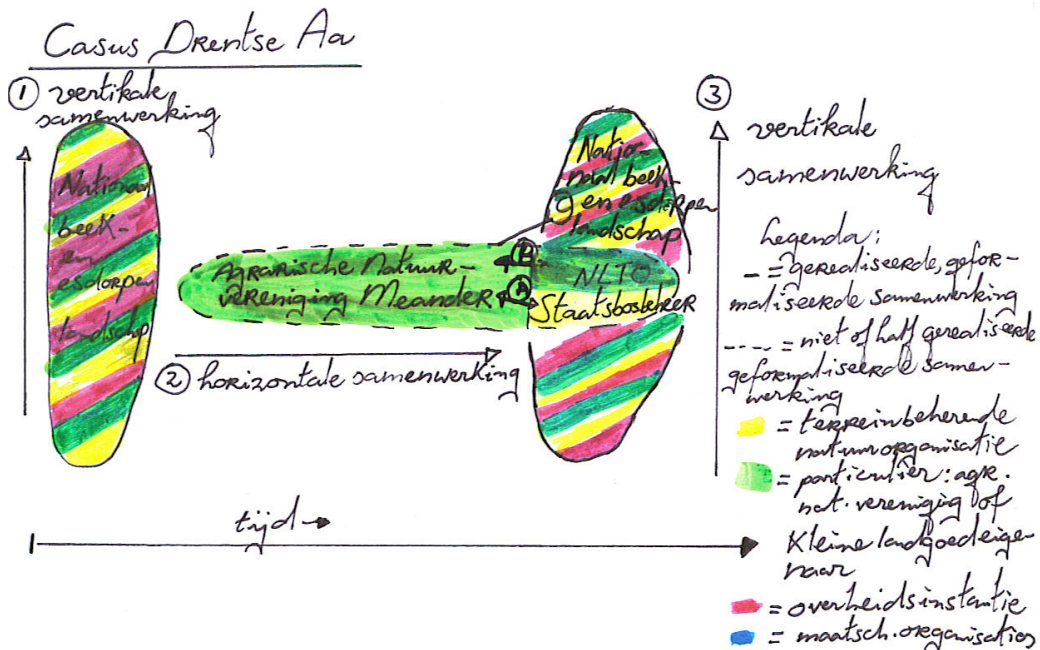 Casus Drentse Aa
① vertikale
samenwerking
Nationaal
beek-
en
esdorpen
landschap
Agrarische Natuur-
vereniging Meander
② horizontale samenwerking
Natio-
naal beek-
en esdorpen
landschap
B
NLTO
A
Staatsbosbeheer
tijd →
③
vertikale
samenwerking
Legenda:
— = gerealiseerde, gefor-
maliseerde samenwerking
---- = niet of half gerealiseerde
geformaliseerde samen-
werking
= terreinbeherende
natuurorganisatie
= particulier: agr.
nat. vereniging of
kleine landgoedeige-
naar
= overheidsinstantie
= maatsch. organisaties